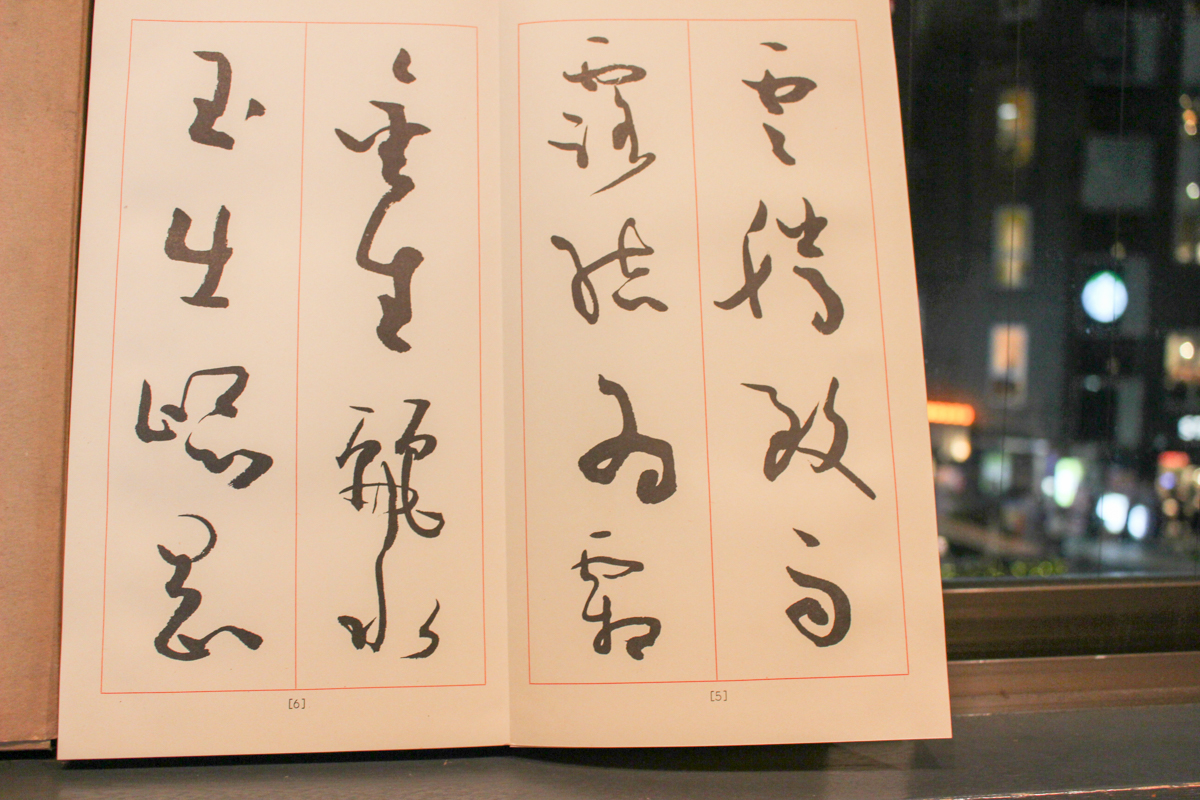 雲騰致雨
露結為霜
[5]
金生麗水
玉出崑岡
[6]